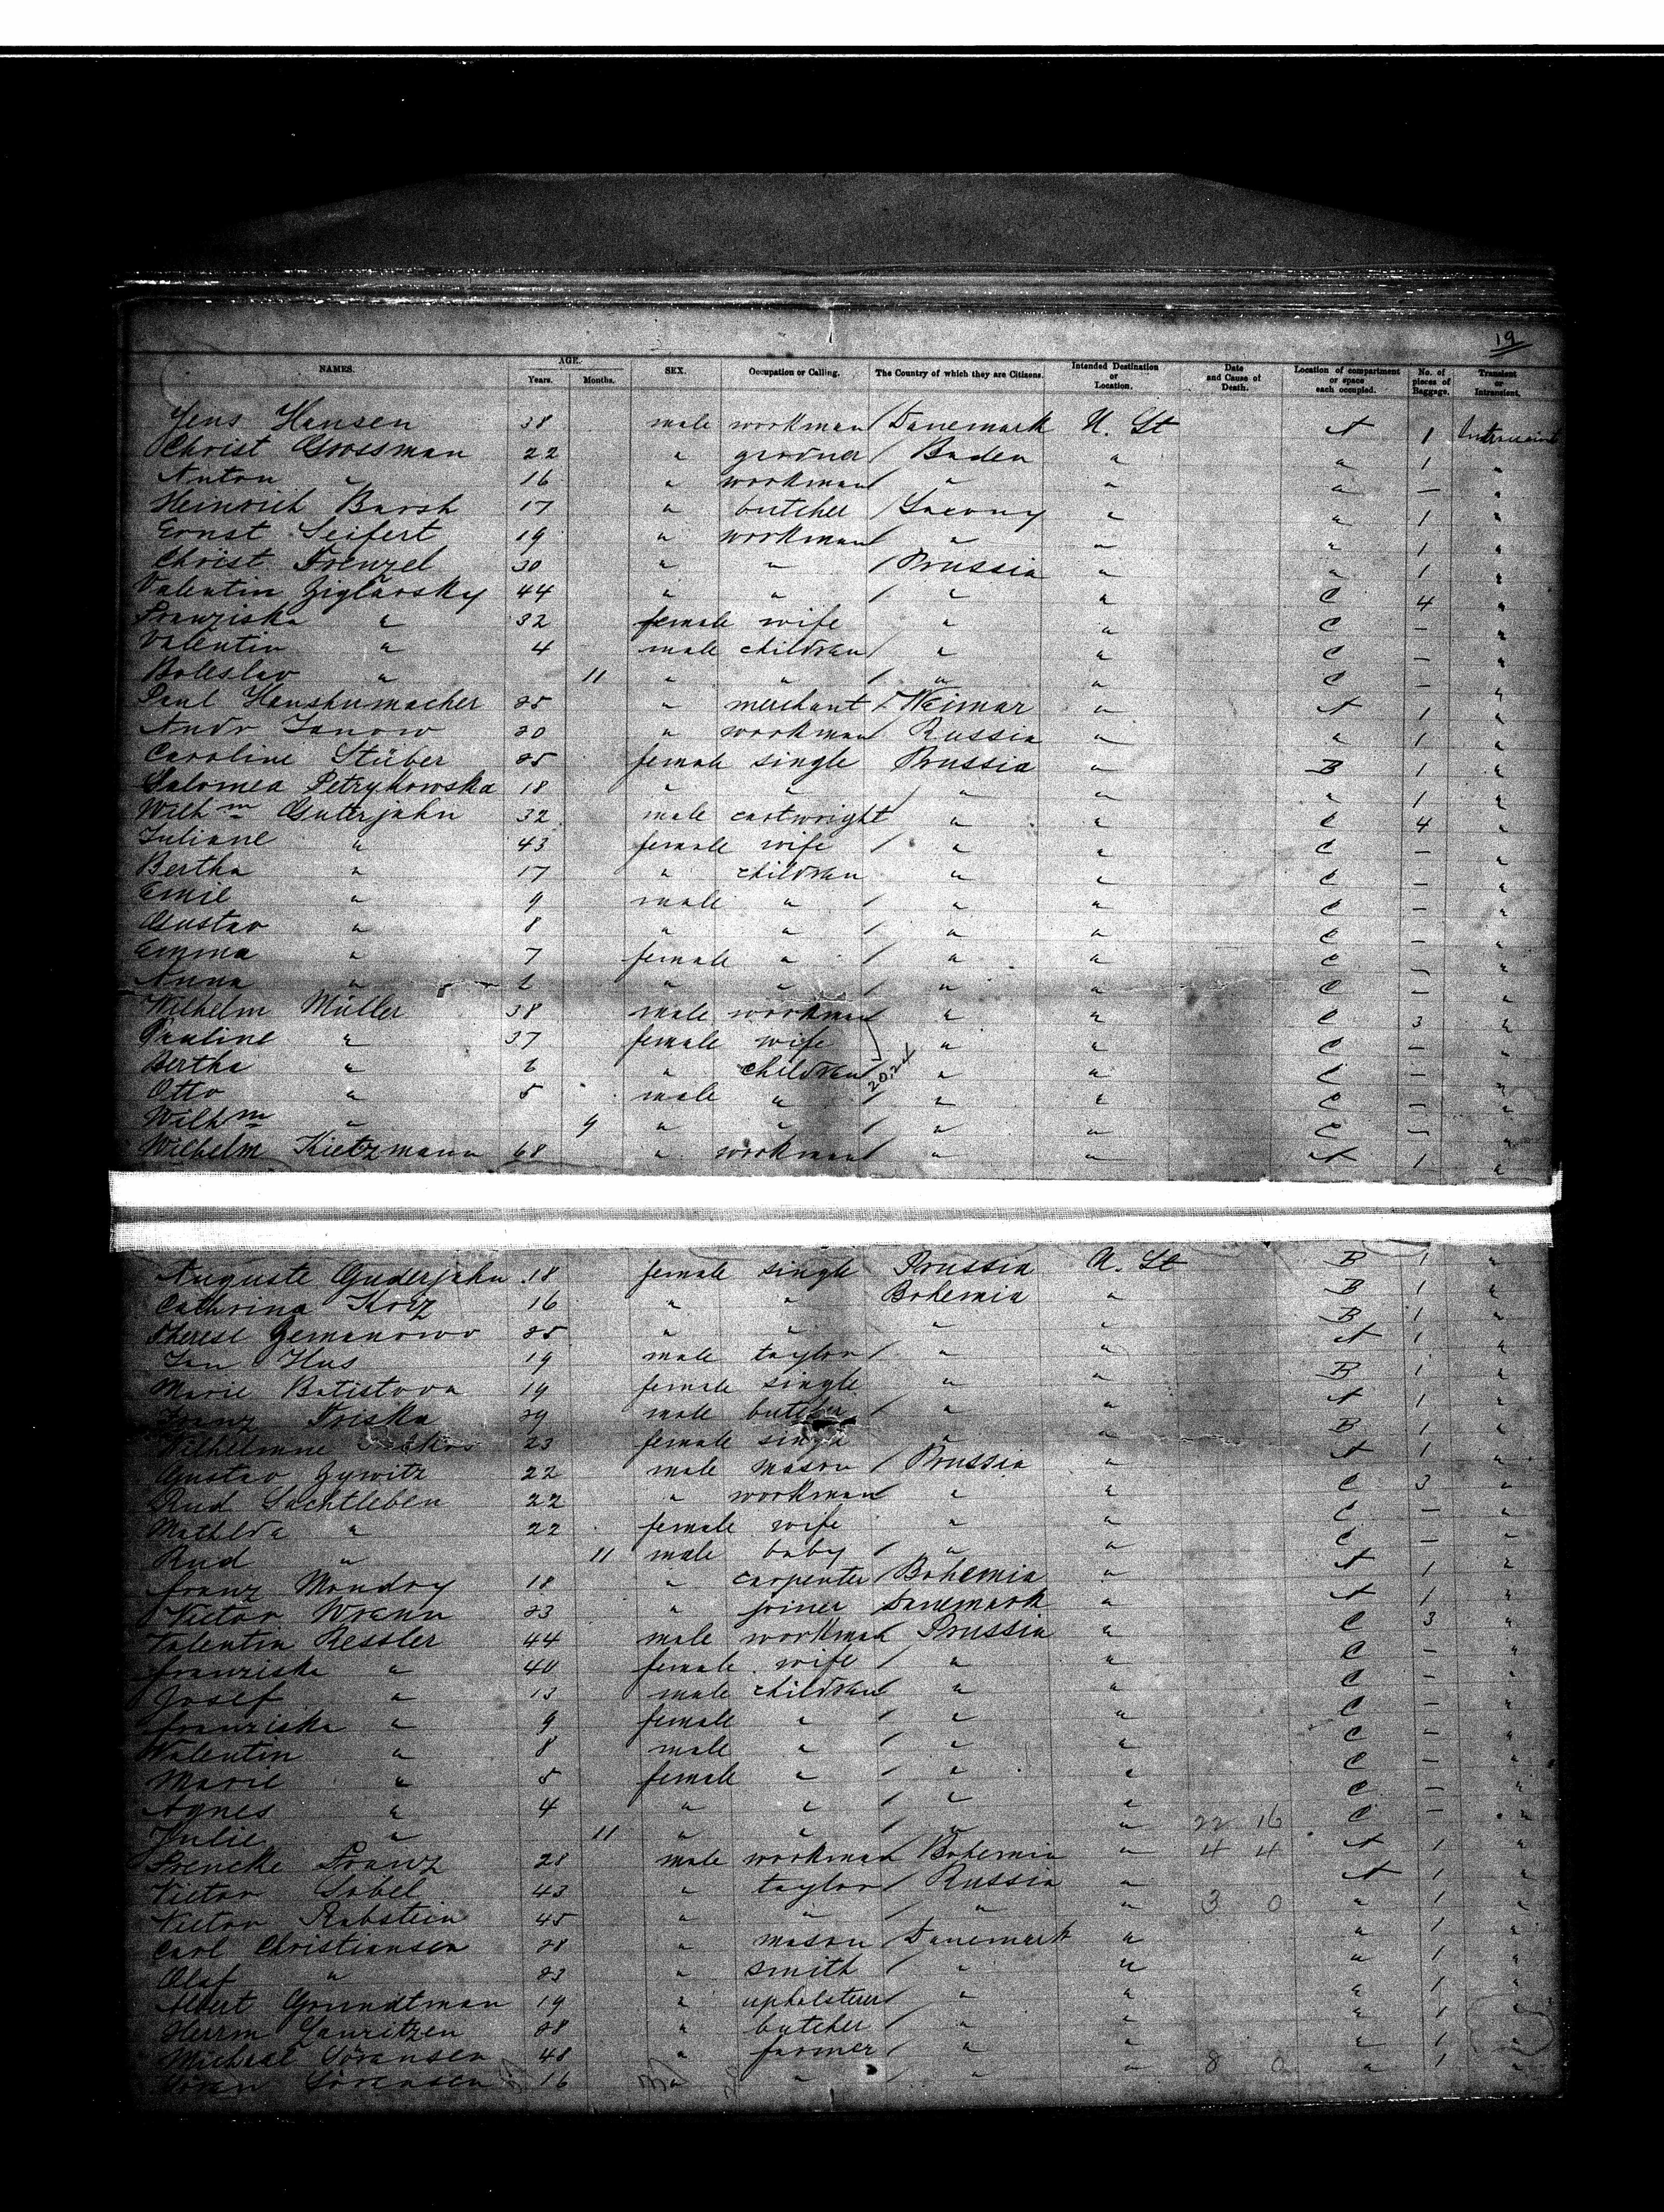 19
NAMES. AGE. Years. Months. SEX. Occupation or Calling. The Country of which they are Citizens. Intended Destination or Location. Date and Cause of Death. Location of compartment or space each occupied. No. of pieces of Baggage. Transient or Intransient.
Jens Hansen 38 male workman Danemark U. St A 1
Christ Grossman 22 " Baden " " 1 "
Anton " 16 " workman " " " — "
Heinrich Barsh 17 " butcher " " 1 "
Ernst Seifert 19 " workman " " " 1 "
Christ Frenzel 30 " " Prussia " " 1 "
Valentin Ziglarsky 44 " " " " C 4 "
Franziska " 32 female wife " " C — "
Valentin " 4 male children " " C — "
Boleslav " 11 " " " " C — "
Paul Hanshumacher 25 " merchant Weimar " A 1 "
Andr Janow 20 " workman Russia " " 1 "
Caroline Stüber 25 female single Prussia " B 1 "
Salomea Petrykowska 18 " " " " " 1 "
Wilhm Guterjahn 32 male cartwright " " C 4 "
Juliane " 43 female wife " " C — "
Bertha " 17 " children " " C — "
Emil " 9 male " " " C — "
Gustav " 8 " " " " C — "
Emma " 7 female " " " C — "
Anna " " " " " C — "
Wilhelm Müller 38 male workman " " C 3 "
Pauline " 37 female wife " " C — "
Bertha " " children " " C — "
Otto " 5 male " " " C — "
Wilhm " 9 " " " " C — "
Wilhelm Kietzmann 68 " workman " " A 1 "
Auguste Guderjahn 18 female single Prussia U. St B 1 "
Cathrina Korz 16 " " Bohemia " B 1 "
Therese Zemanowo 25 " " " " B 1 "
Jan Hus 19 male taylor " " A 1 "
Marie Batistova 19 female single " " B 1 "
Franz Triska 29 male butcher " " A 1 "
Wilhelmine 23 female single " " B 1 "
Gustav Zywitz 22 male mason Prussia " A 1 "
Rud Sachtleben 22 " workman " " C 3 "
Mathlda " 22 female wife " " C — "
Rud " 11 male baby " " C — "
Franz Mondry 18 " carpenter Bohemia " A 1 "
Victor Wrenn 23 " joiner Danemark " A 1 "
Valentin Ressler 44 male workman Prussia " C 3 "
Franziska " 40 female wife " " C — "
Josef " 13 male children " " C — "
Franziska " 9 female " " " C — "
Valentin " 8 male " " " C — "
Marie " 5 female " " " C — "
Agnes " 4 " " " " C — "
Julie " 11 " " " " 22 16 C — "
Franz 28 male workman Bohemia " 4 4 A 1 "
Victor Sobel 43 " taylor Russia " A 1 "
Victor Rabstein 45 " " " " 3 0 " 1 "
Carl Christiansen 28 " mason Danemark " " 1 "
Olaf " 23 " smith " " " 1 "
Albert Grundtman 19 " " " " 1 "
Herrm Lauritzen 28 " butcher " " " 1 "
Michael Sörensen 48 " farmer " " " 1 "
Sören Sörensen 16 " " " " 8 0 " 1 "